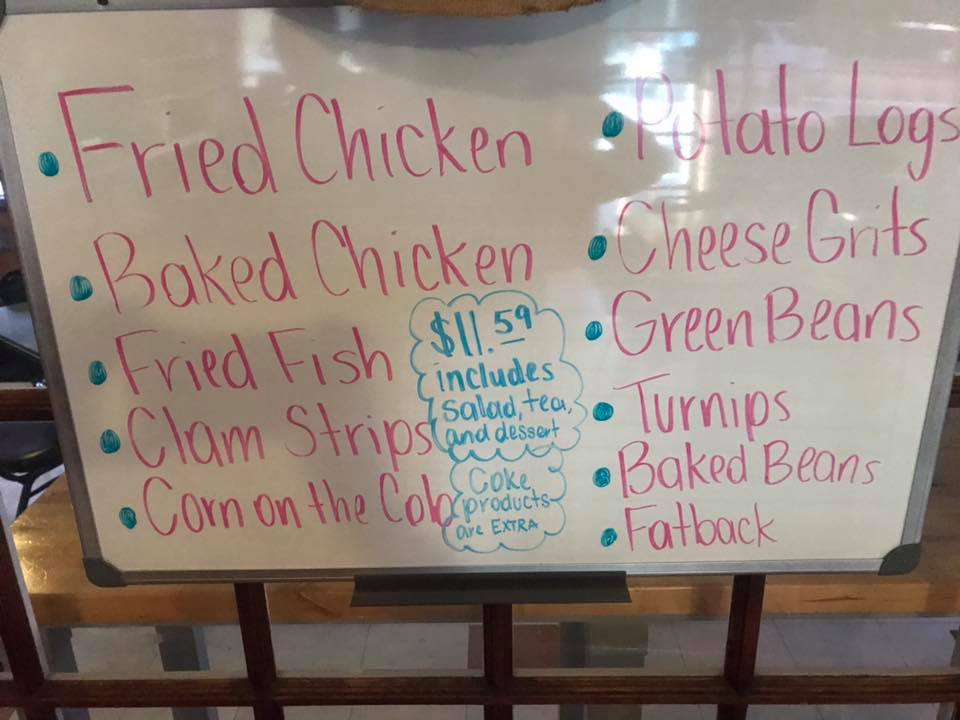 • Fried Chicken
• Baked Chicken
• Fried Fish
• Clam Strips
• Corn on the Cob
$11.59
includes
salad, tea,
and dessert
Coke
products
are EXTRA
• Potato Logs
• Cheese Grits
• Green Beans
• Turnips
• Baked Beans
• Fatback